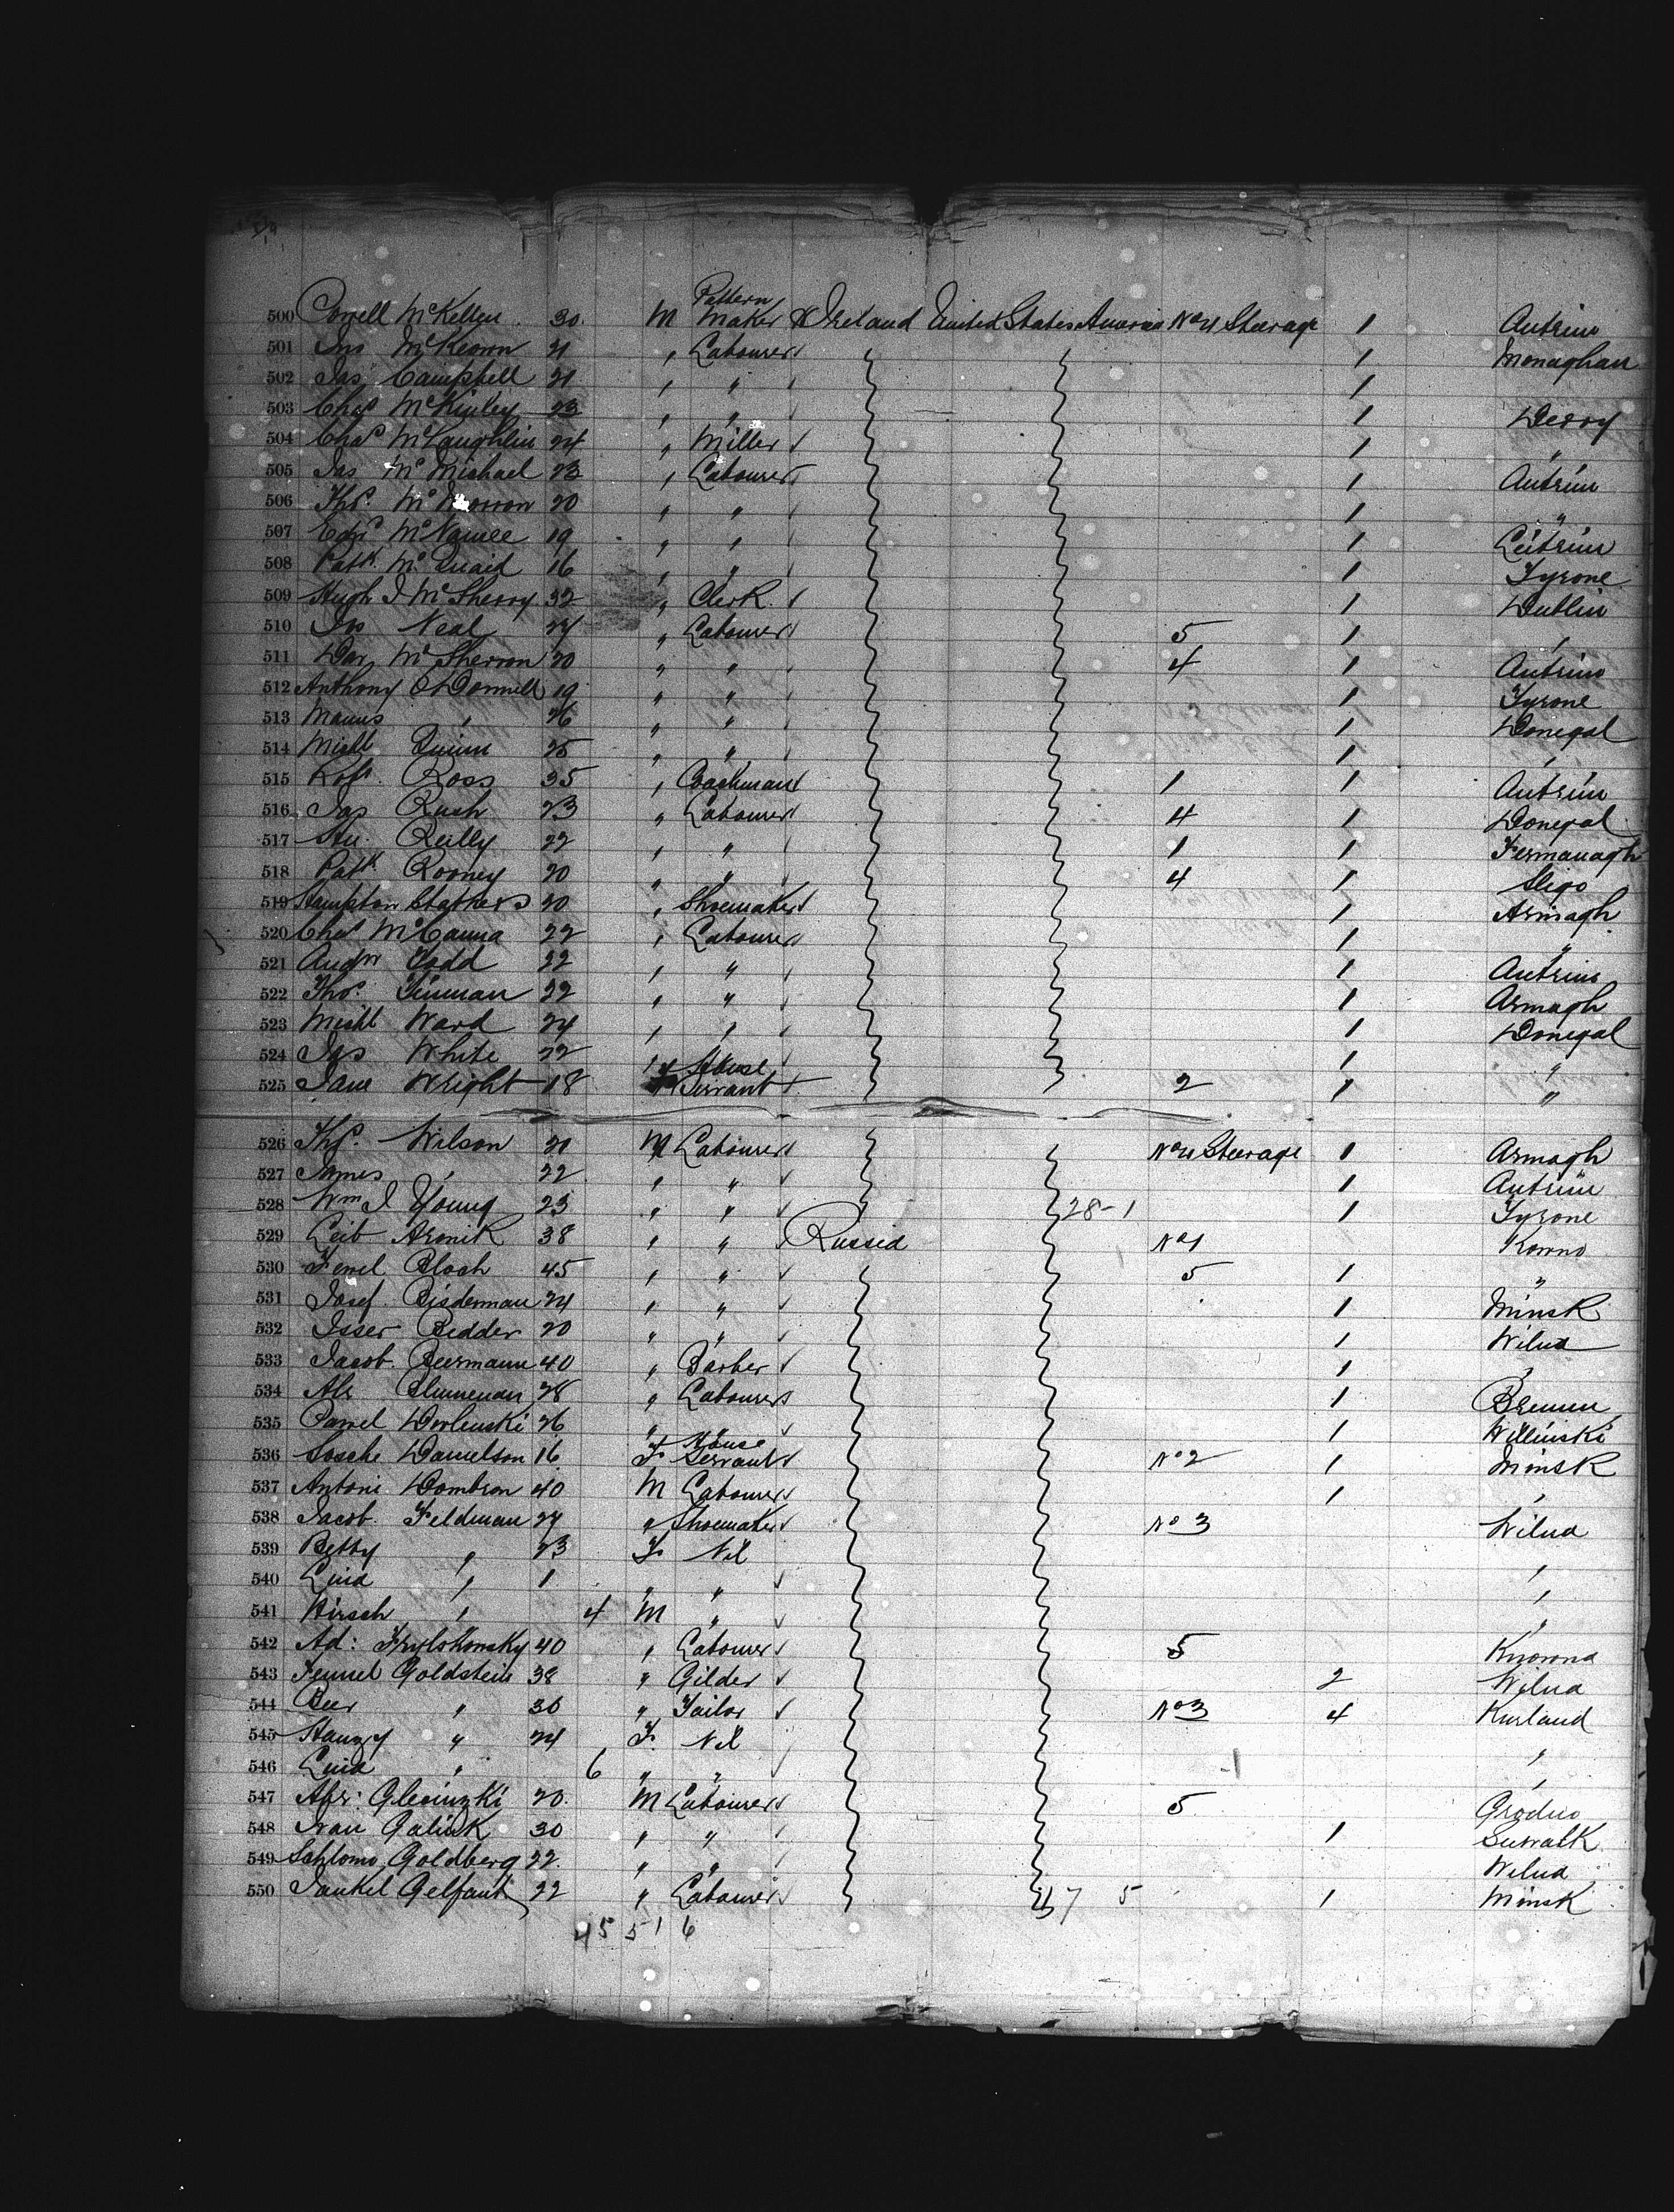 500 Correll McKellen 30. M Pattern Maker Ireland United States America No 4 Steerage 1 Antrim
501 Jno McKeown 21 " Labourer 1 Monaghan
502 Jas Campbell 21 " " 1
503 Chas McKinley 23 " " 1 Derry
504 Chas McLaughlin 24 " Miller 1 "
505 Jas McMichael 23 " Labourer 1 Antrim
506 Thos. 20 " " 1 "
507 Edwd McNamee 19 " " 1 Leitrim
508 Patk. McQuaid 16 " " 1 Tyrone
509 Hugh J McSherry 32 " Clerk 1 Dublin
510 Jno Neal 24 " Labourer 5 1 "
511 Dan McSherron 20 " " 4 1 Antrim
512 Anthony O'Donnell 19 " " 1 Tyrone
513 Manus " 26 " " 1 Donegal
514 Michl Quinn 25 " " 1 "
515 Robt. Ross 35 " Coachman 1 1 Antrim
516 Jas Rush 23 " Labourer 4 1 Donegal
517 Reilly 22 " " 1 1 Fermanagh
518 Patk Rooney 20 " " 4 1 Sligo
519 Hampton Stathers 20 " Shoemaker 1 Armagh
520 Chas McCanna 22 " Labourer 1 "
521 Andw Todd 22 " " 1 Antrim
522 Thos. Tinman 22 " " 1 Armagh
523 Michl Ward 24 " " 1 Donegal
524 Jas White 22 " " 1 "
525 Jane Wright 18 F House Servant 2 1 "
526 Thos. Wilson 21 M Labourer No 4 Steerage 1 Armagh
527 James " 22 " " 1 Antrim
528 Wm J Young 23 " " 28-1 1 Tyrone
529 Leib Aronik 38 " " Russia No 1 Kowno
530 Bloch 45 " " 5 1 "
531 Josef Bisderman 24 " " 1 Minsk
532 Isser Bedder 20 " " 1 Wilna
533 Jacob Beermann 40 " Barber 1 "
534 Abr Blumenau 28 " Labourer 1 Bremen
535 Dorlenski 26 " " 1 Willinski
536 Sosche Danielson 16 F House Servant No 2 1 Minsk
537 Antoni Dombron 40 M Labourer 1 "
538 Jacob Feldman 27 " Shoemaker No 3 Wilna
539 Betty " 23 F Nil "
540 Lina " 1 " " "
541 Hirsch " 4 M " "
542 Ad: 40 " Labourer 5 Knowna
543 Goldstein 38 " Gilder 2 Wilna
544 Beer " 36 " Tailor No 3 4 Kurland
545 " 24 F. Nil "
546 Lina " 6 " " 1 "
547 Abr: Glesinzki 20. M Labourer 5 Grodno
548 Ivan Galick 30 " " 1 Suwalk
549 Schlomo Goldberg 22. " " Wilna
550 Jankel Gelfant 22 " Labourer 7 5 1 Minsk
45 5 1 6